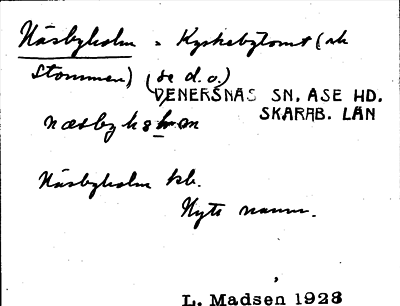 Näsbyholm = Kyrkebytomt (ok
Stommen) (se d.o.)
VÄNERSNÄS SN, ÅSE HD.
SKARAB. LÄN
næsbyhɔḷm
Näsbyholm kb.
Nytt namn.
L. Madsen 1928